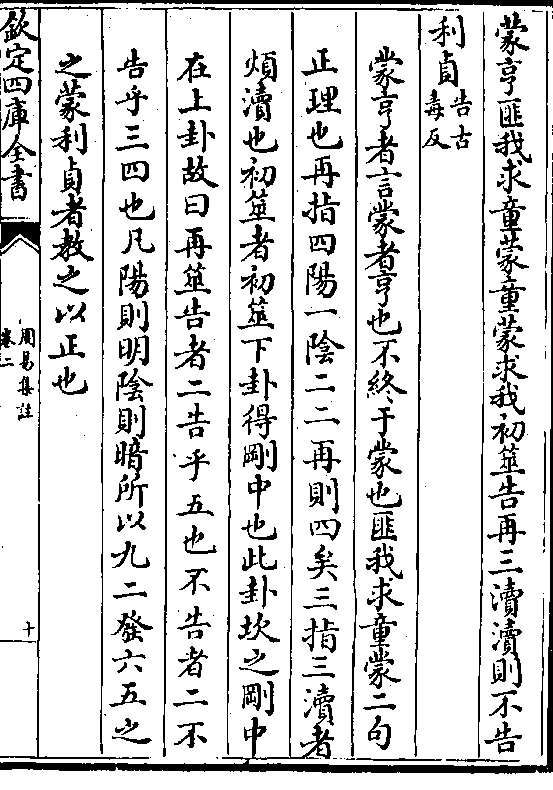 蒙亨匪我求童蒙童蒙求我初筮告再三瀆瀆則不告
利貞告古毒反
蒙亨者言蒙者亨也不終于蒙也匪我求童蒙二句
正理也再指四陽一陰二二再則四矣三指三瀆者
煩瀆也初筮者初筮下卦得剛中也此卦坎之剛中
在上卦故曰再筮告者二告乎五也不告者二不
告乎三四也凡陽則明陰則暗所以九二發六五之
之蒙利貞者教之以正也
欽定四庫全書
周易集註
卷二
十